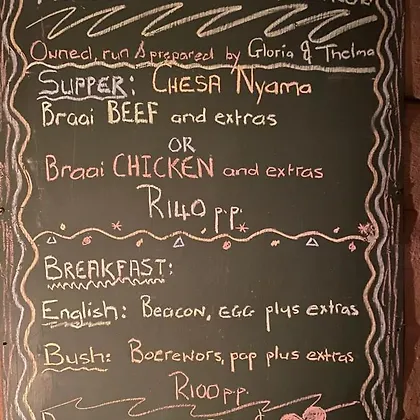 Owned, run & prepared by Gloria & Thelma
SUPPER: CHESA Nyama
Braai BEEF and extras
OR
Braai CHICKEN and extras
R140 p.p.
BREAKFAST:
English: Beacon, EGG plus extras
Bush: Boerewors, pap plus extras
R100 p.p.